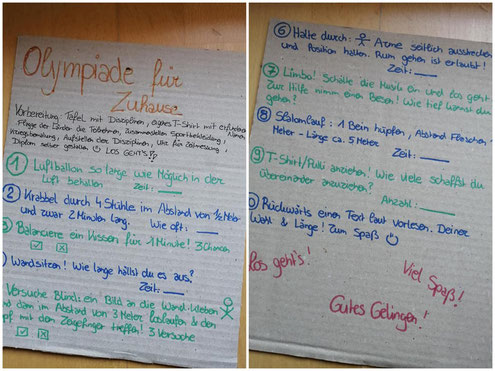 Olympiade für
Zuhause
Vorbereitung: Tafel mit Disziplinen, eigenes T-Shirt mit
Flagge der Länder die Teilnehmen, zusammenstellen Sportbekleidung,
Kreegbemalung, Aufstellen der Disziplinen, Uhr für Zeitmessung,
Diplom selber gestalten ☺ Los geht's!!
① Luftballon so lange wie möglich in der
Luft behalten Zeit: ___
② Krabbel durch 4 Stühle im Abstand von 1/2 Meter
und zwar 2 Minuten lang. Wie oft: ___
3 Balanciere ein Kissen für 1 Minute! 3 Chancen
☑ ☒
Wandsitzen! Wie lange hältst du es aus?
Zeit: ___
Versuche Blind: ein Bild an die Wand kleben
und dann im Abstand von 3 Meter loslaufen & den
pf mit dem Zeigefinger treffen! 3 Versuche
☑ ☒
⑥ Halte durch: Arme seitlich ausstrecken
und Position halten. Rum gehen ist erlaubt!
Zeit: ___
⑦ Limbo! Schalte die Musik an und los geht
Zur Hilfe nimm einen Besen! Wie tief kannst du
gehen?
⑧ Slalomlauf: 1 Bein hüpfen, Abstand Flaschen-
Meter - Länge ca. 5 Meter
⑨ T-Shirt/Pulli anziehen! Wie viele schaffst du
übereinander anzuziehen?
Anzahl: ___
Rückwärts einen Text laut vorlesen. Deiner
Wahl & Länge! Zum Spaß ☺
Los geht's!
Viel Spaß!
Gutes Gelingen!